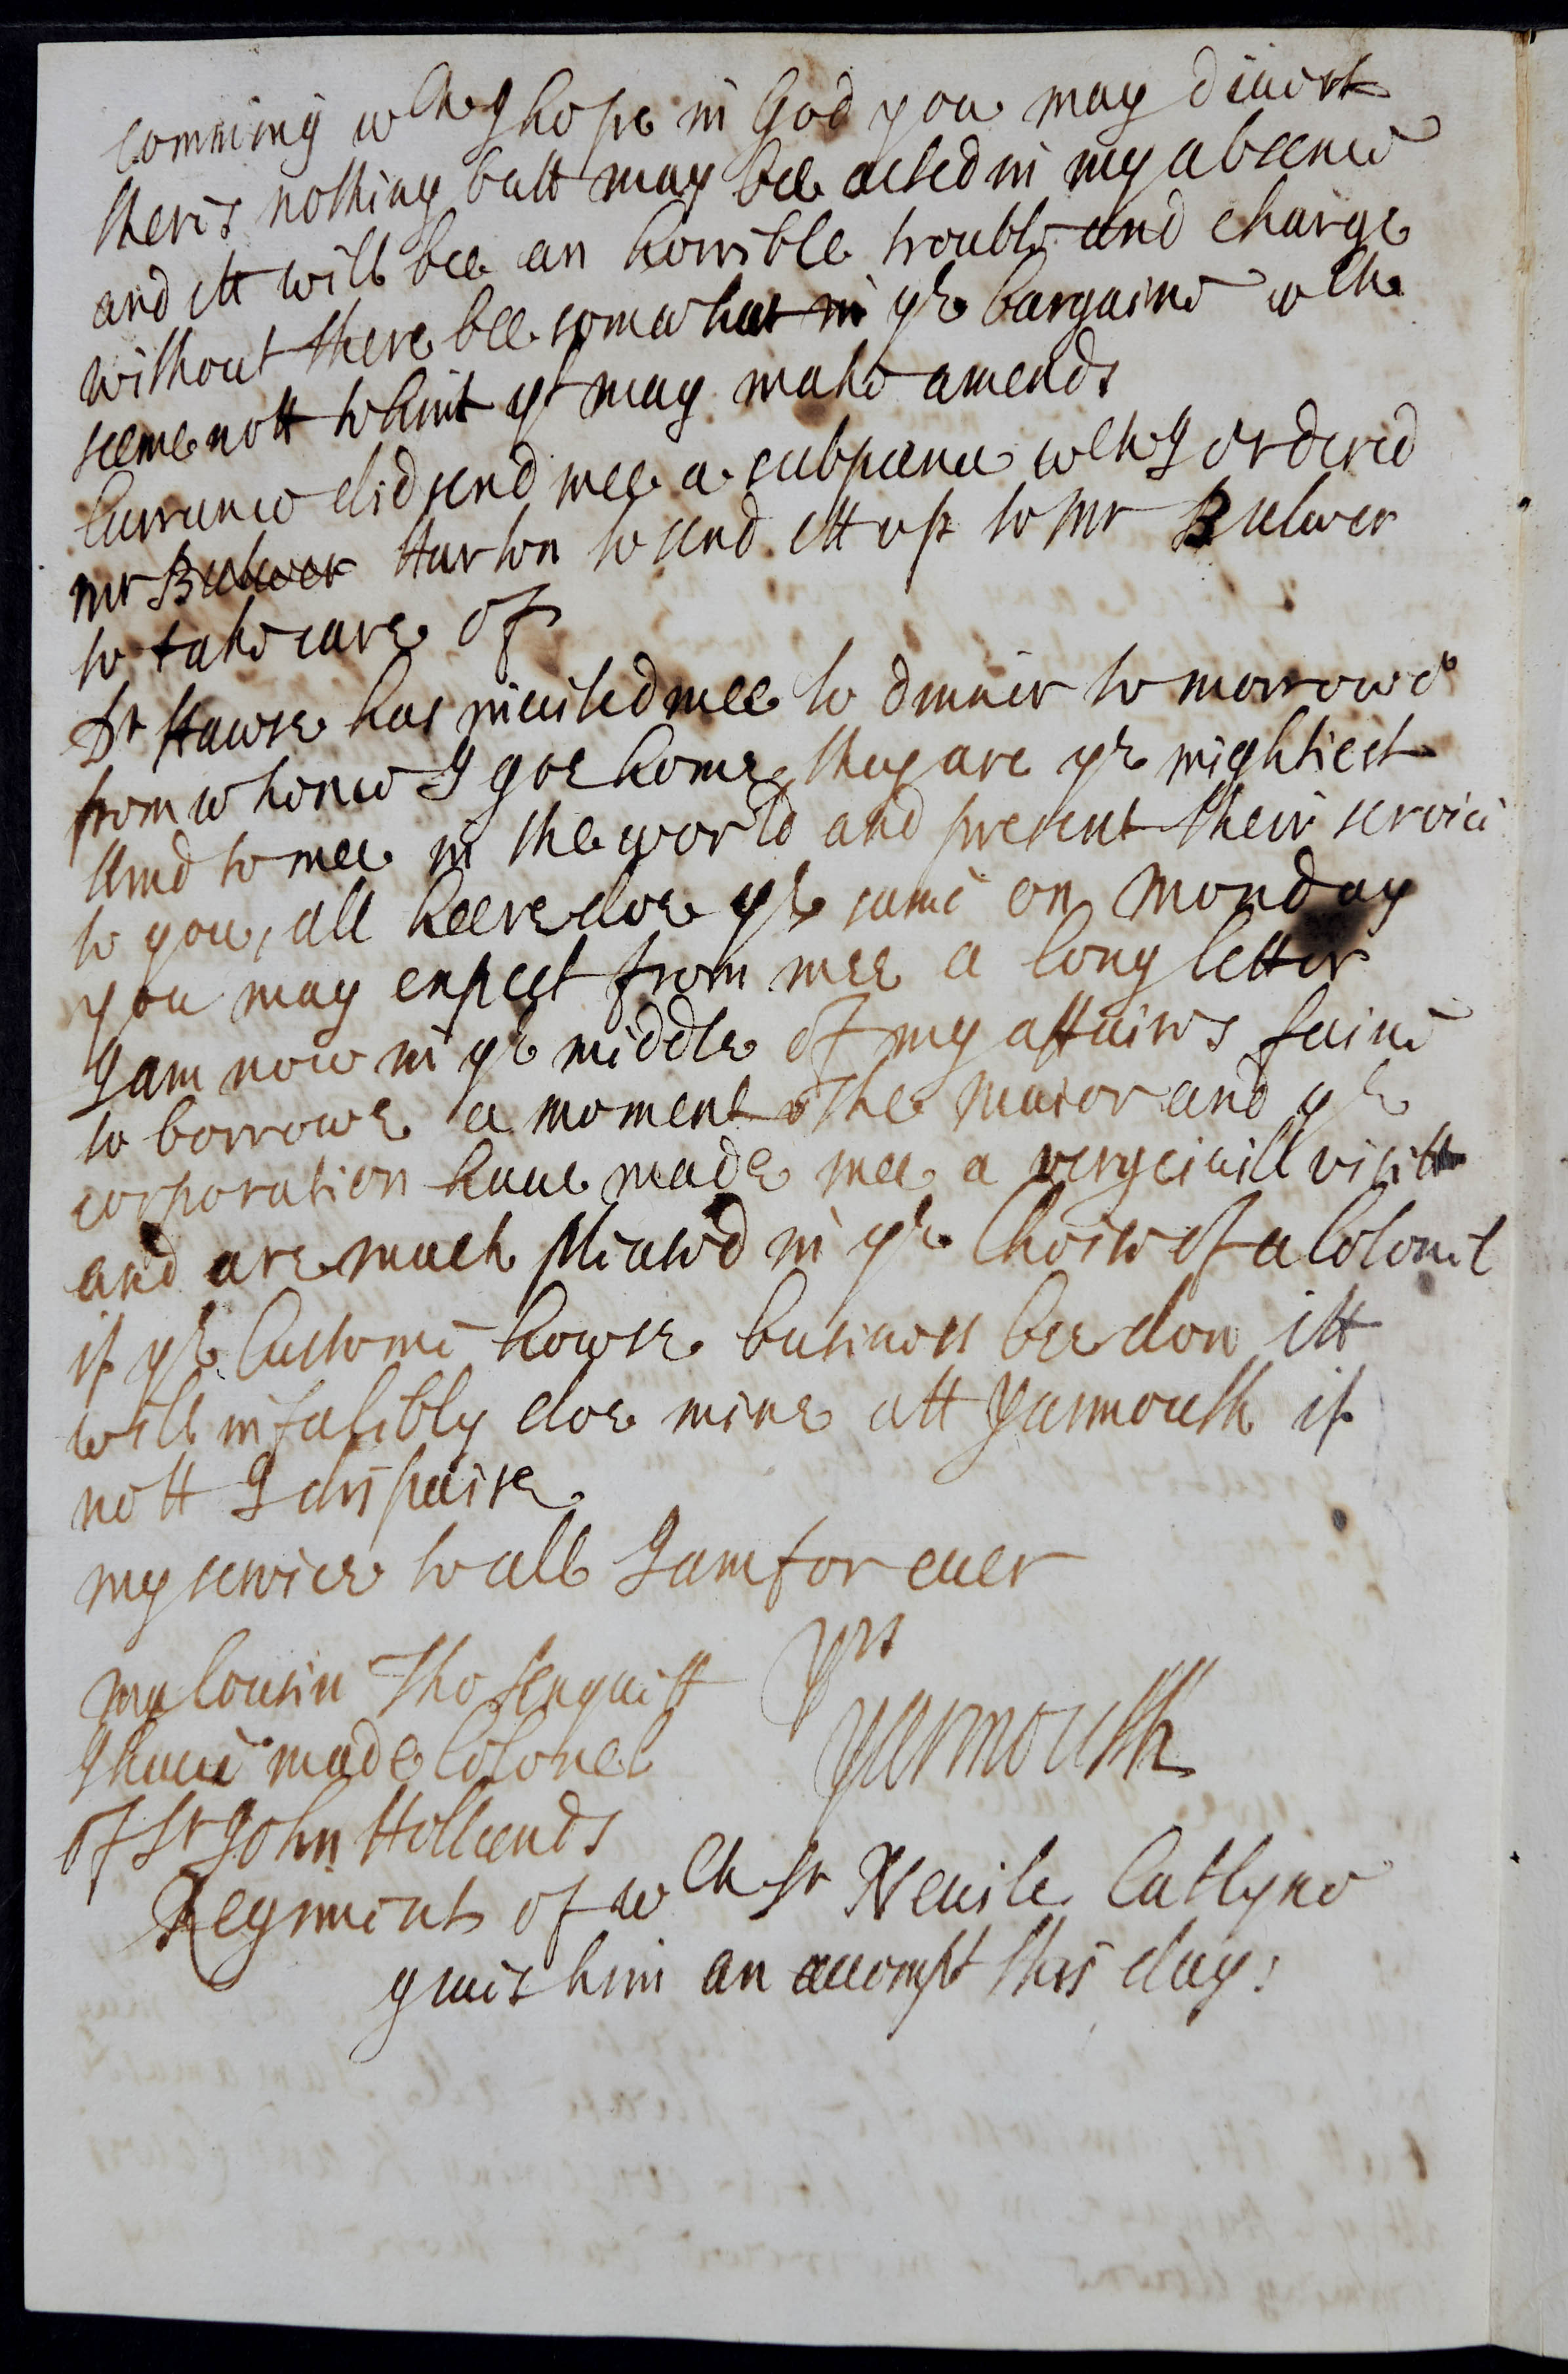 comming wch I hope in God you may diuert
theris nothing butt may bee acted in my absence
and itt will bee an horrible trouble and charge
without there bee somwhat in ye bargaine wch
seeme nott to hint yt may make amends
Currance did send mee a subpena wch I ordered
mr Bulwer Harton to send itt up to Mr Bulwer
to take care of
Dr Hawse has inuited mee to dinner to morrowe
from whence I goe home, they are ye mightiest
kind to mee in the world and present their service
to you, all heere doe ye same on Monday
you may expect from mee a long letter
I am now in ye middle of my affairs faine
to borrowe a moment the Maior and ye
corporation haue made mee a very ciuill visitt
and are much pleased in ye Choice of a Colonel
if ye Custome howse business bee don itt
will infalibly doe mine att Yarmouth if
nott I dispaire
my service to all I am for euer
Yrs
Yarmouth
my Cousin Tho
I haue made Colonel
of Sr John Hollands
Regiment of wch Sr Neuile Catlyne
giues him an accompt this day: